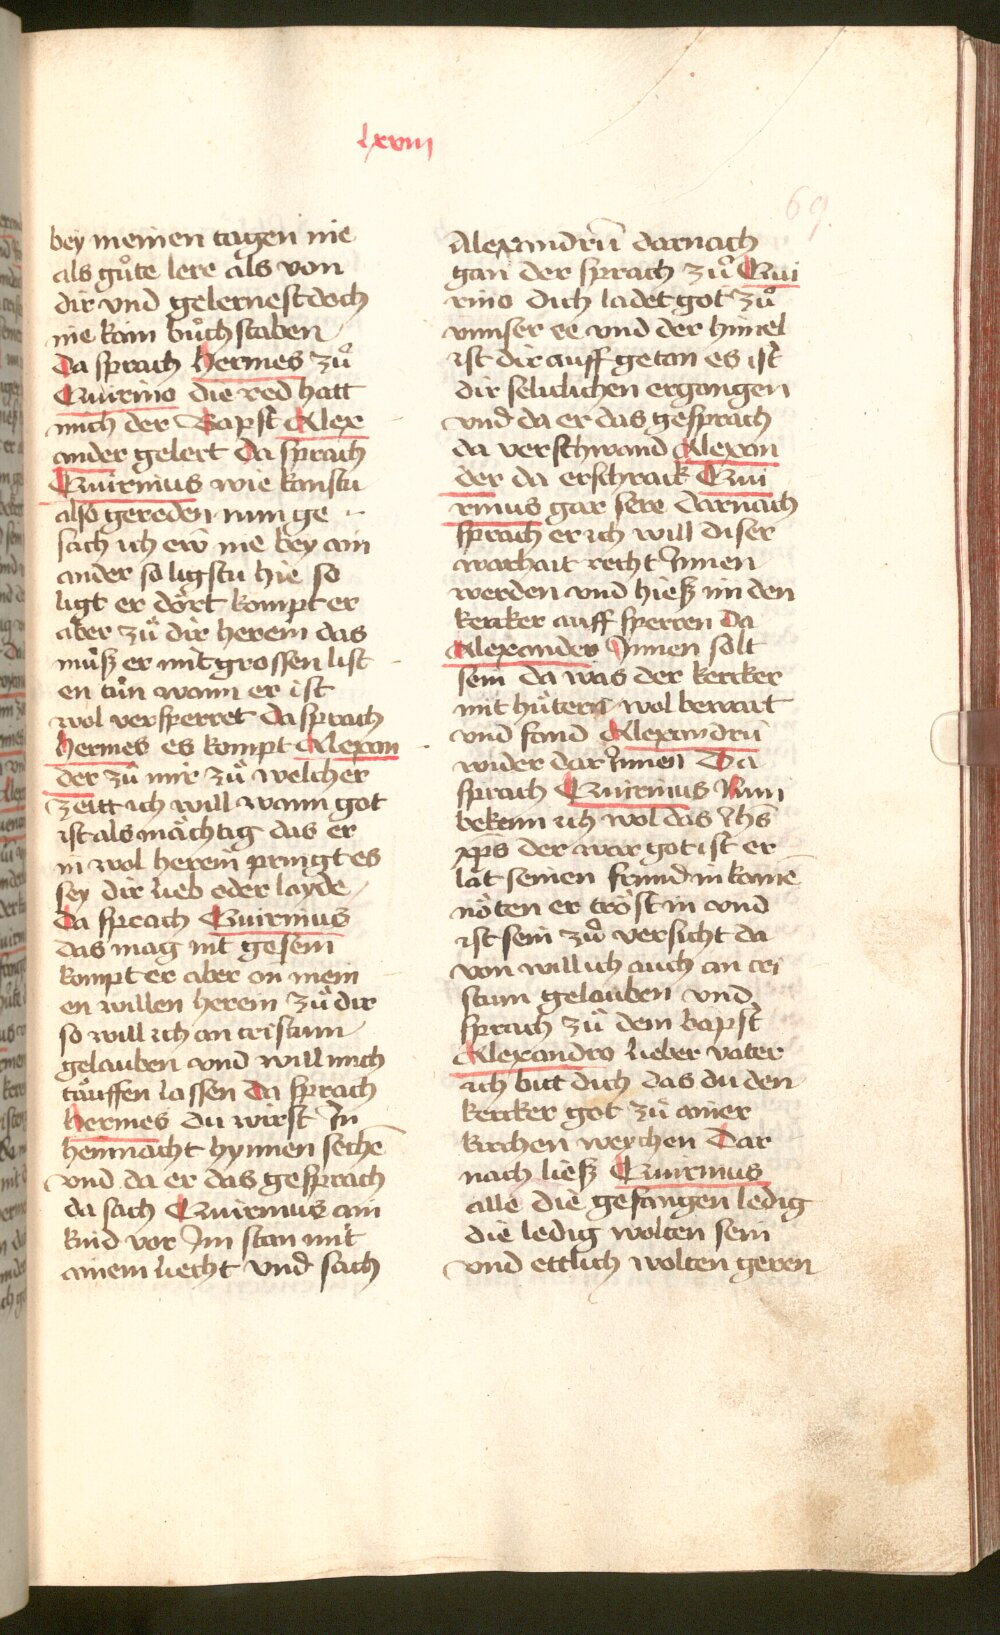 lxviii
69.
bey meinen tagen nie
als gůte lere als von
dir vnd gelernest doch
nie kain bůchstaben
Da sprach Hermes zů
Quirino die red hatt
mich der Bapst Alex
ander gelert Da sprach
Quirinius wie kanstu
also gereden nun ge
sach ich ew nie bey ain
ander so ligstu hie so
ligt er dört kompt er
aber zů dir herein das
můß er mit grossen list
en tůn wann er ist
wol versperret Da sprach
Hermes es kompt Alexan
der zů mir zů welcher
zeitt ich will wann got
ist als mächtig das er
in wol herein pringt es
sey dir lieb oder layde
Da sprach Quirinus
das mag nit gesein
kompt er aber on mein
en willen herein zů dir
so will ich an cristum
gelauben vnd will mich
täuffen lassen Da sprach
Hermes du wirst In
heinnacht hynnen sechē
vnd da er das gesprach
da sach Quirinus ain
kind vor Im stan mit
ainem liecht vnd sach
Alexandrū darnach
gan der sprach zů Qui
rino dich ladet got zů
vnnser ee vnd der himel
ist dir auff getan es ist
dir seliclichen ergangen
vnd da er das gesprach
da verschwand Alexan
der da erschrack Qui
rinus gar sere darnach
sprach er ich will diser
warhait recht Innen
werden vnd hieß im den
kercker auff sperren Da
Alexander Innen solt
sein da was der kercker
mit hůtern wol bewart
vnd fand Alexandrū
wider dar Innen Da
sprach Quirinius Nun
bekenn ich wol das ihs
xp̄s der war got ist er
lāt seinen frund in kainē
nöten er tröst in vnd
ist sein zů versicht da
von will ich auch an cri
stum gelauben vnd
sprach zů dem bapst
Alexandro lieber vater
ich bitt dich das du den
kercker got zů ainer
kirchen weychen Dar
nach ließ Quirinus
alle die gefangen ledig
die ledig wolten sein
vnd ettlich wolten geren